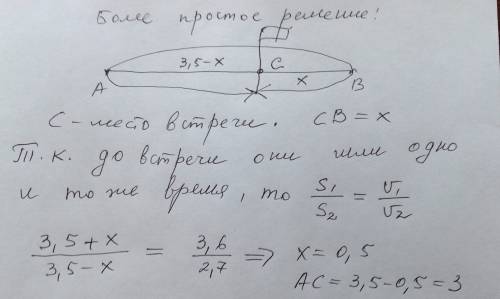 Более простое решение!
3,5-x C x
A B
C - место встречи. CB = x
Т.к. до встречи они шли одно
и то же время, то S₁/S₂ = v₁/v₂
(3,5+x)/(3,5-x) = 3,6/2,7 => x = 0,5
AC = 3,5-0,5 = 3